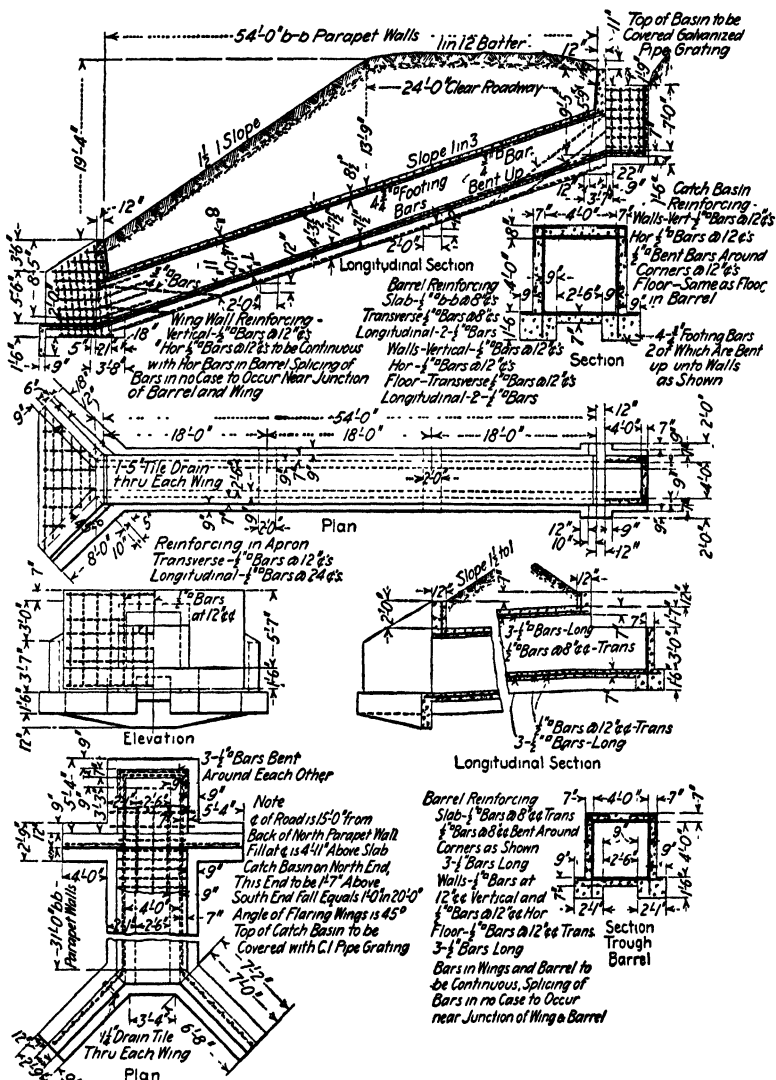 54'-0" b-b Parapet Walls
1 in 12 Batter
12"
11"
Top of Basin to be
Covered Galvanized
Pipe Grating
24'-0" Clear Roadway
1½:1 Slope
19'-4"
13'-9"
Slope 1 in 3
Bar
Bent Up
Footing
Bars
7'-0"
22"
3'-7"
9"
1'-6"
12"
Longitudinal Section
2'-0"
3'-6"
8'-5"
5'-6"
2'-0"
1'-6"
9"
5"
18"
3'-8"
Wing Wall Reinforcing -
Vertical-½"□Bars@12"¢s
Hor ½"□Bars@12"¢s to be Continuous
with Hor Bars in Barrel Splicing of
Bars in no Case to Occur Near Junction
of Barrel and Wing
Barrel Reinforcing
Slab-½"□b-b@8"¢s
Transverse ½"□Bars@8"¢s
Longitudinal-2-½"□Bars
Walls-Vertical-½"□Bars@12"¢s
Hor-½"□Bars@12"¢s
Floor-Transverse ½"□Bars@12"¢s
Longitudinal-2-½"□Bars
7" 4'-0" 7"
8"
4'-0"
9"
9"
2'-6"
1'-6"
7"
Section
Catch Basin
Reinforcing-
Walls-Vert-½"□Bars@12"¢s
Hor ½"□Bars@12"¢s
½"□Bent Bars Around
Corners@12"¢s
Floor-Same as Floor
in Barrel
Footing Bars
2 of Which Are Bent
up unto Walls
as Shown
54'-0"
18'-0" 18'-0" 18'-0"
12"
4'-0"
7"
2'-0"
1-5" Tile Drain
thru Each Wing
2'-0"
2'-0"
Plan
8'-0"
10"
5"
12"
10"
9"
12"
4'-0"
2'-0"
Reinforcing in Apron
Transverse-½"□Bars@12"¢s
Longitudinal-½"□Bars@24"¢s
7"
½"□Bars
at 12"¢¢
3'-0"
3'-7"
1'-6"
12"
5'-7"
1'-6"
Elevation
Slope 1½ to 1
12"
12"
2'-0"
3-½"□Bars-Long
½"□Bars@8"¢¢-Trans
7"
3'-0"
1'-6"
½"□Bars@12"¢¢-Trans
3-½"□Bars-Long
Longitudinal Section
3-½"□Bars Bent
Around Eeach Other
9"
5'-4"
3'-3"
2'-6"
5'-4"
2'-9"
12"
4'-0"
31'-0" b-b
Parapet Walls
4'-0"
2'-6"
7"
9"
9"
Note
¢ of Road is 15'-0" from
Back of North Parapet Wall
Fill at ¢ is 4'-11" Above Slab
Catch Basin on North End,
This End to be 1'-7" Above
South End Fall Equals 1'-0" in 20'-0"
Angle of Flaring Wings is 45°
Top of Catch Basin to be
Covered with C.I Pipe Grating
7'-2"
7'-0"
6'-8"
3'-4"
Drain Tile
Thru Each Wing
Plan
Barrel Reinforcing
Slab-½"□Bars@8"¢¢ Trans
½"□Bars@8"¢¢ Bent Around
Corners as Shown
3-½"□Bars Long
Walls-½"□Bars at
12"¢¢ Vertical and
½"□Bars@12"¢¢ Hor
Floor-½"□Bars@12"¢¢ Trans.
3-½"□Bars Long
Bars in Wings and Barrel to
be Continuous, Splicing of
Bars in no Case to Occur
near Junction of Wing & Barrel
7" 4'-0" 7"
7"
9"
2'-6"
9"
9"
4'-0"
1'-6"
2'-1" 2'-1"
Section
Trough
Barrel